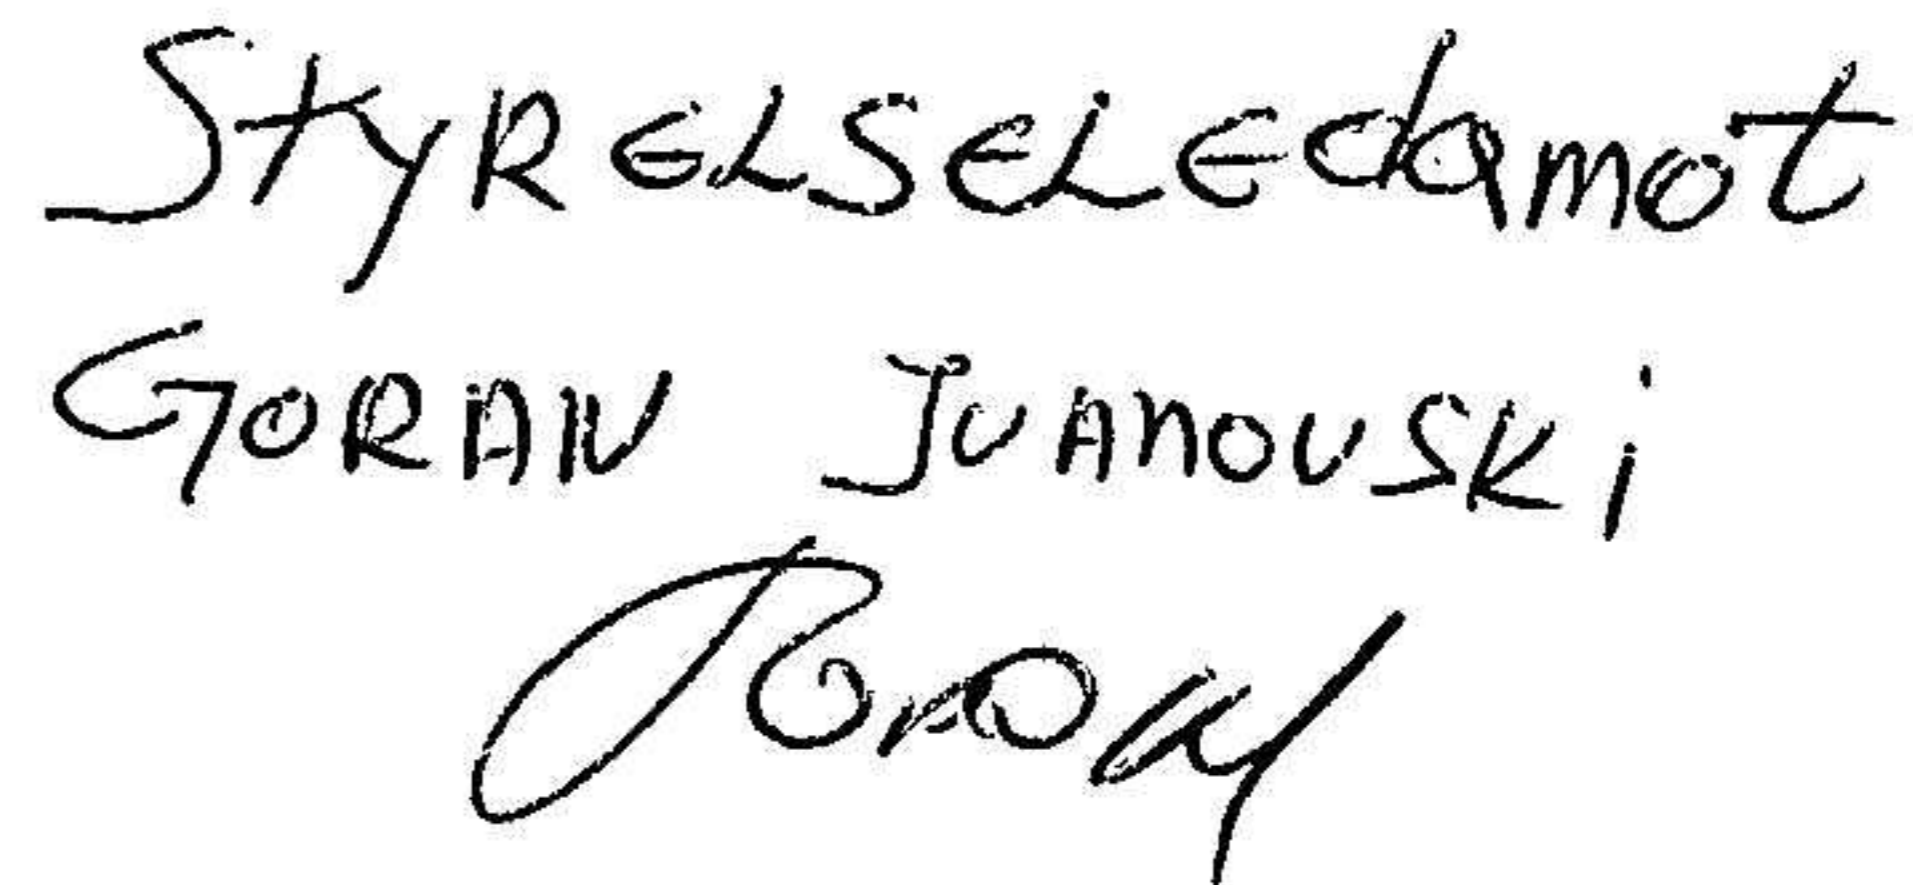 StyRELSELEdamot
GORAN IVANOVSKi